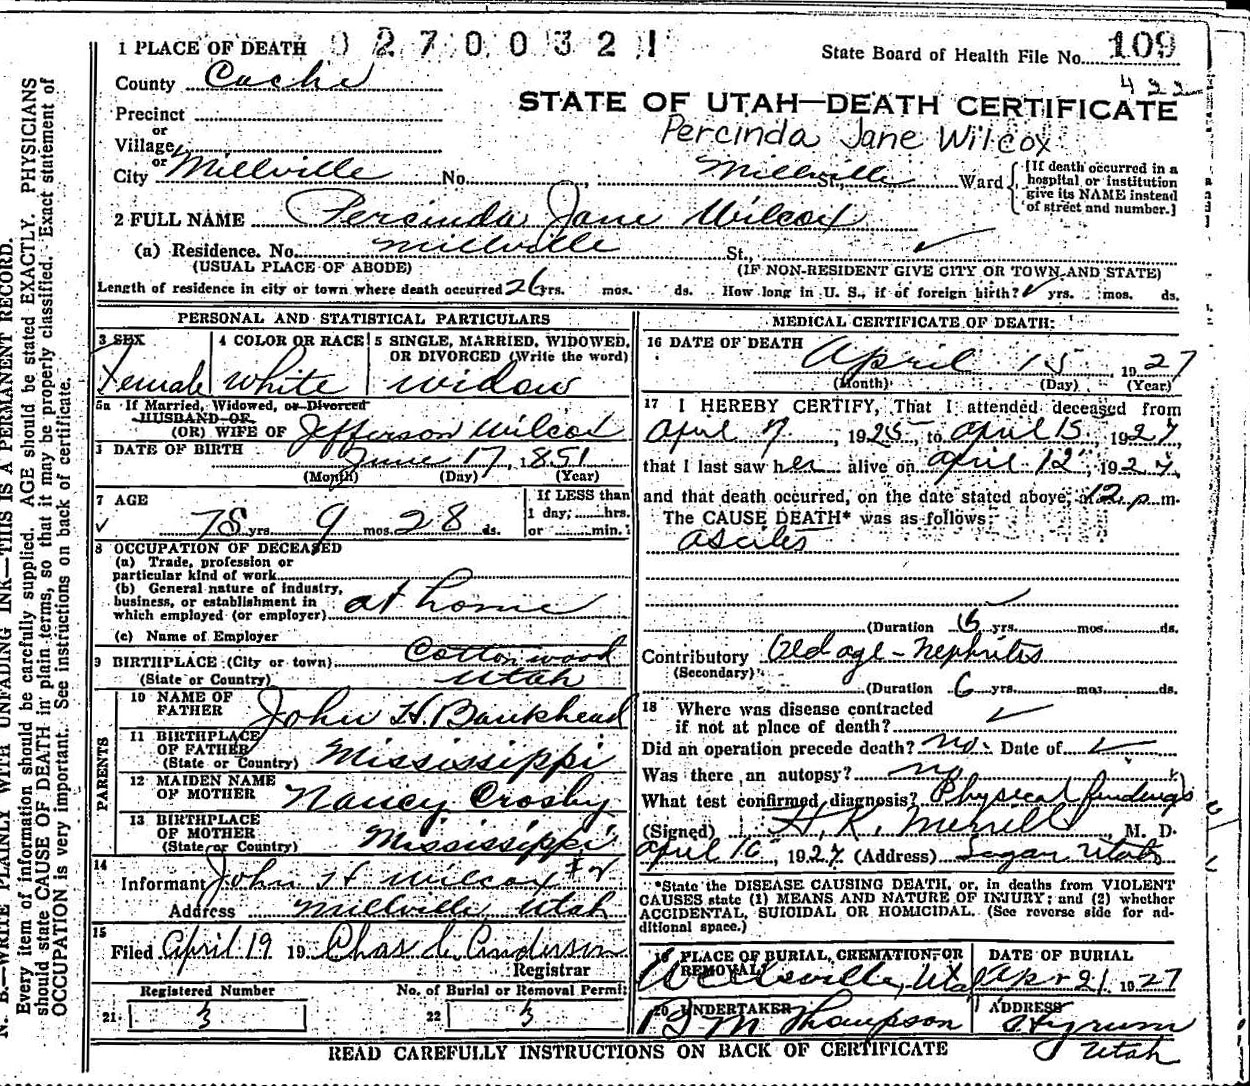 1 PLACE OF DEATH 0270032 1
State Board of Health File No. 109
422
County Cache
STATE OF UTAH—DEATH CERTIFICATE
Precinct
Percinda Jane Wilcox
or
Village
or
City Millville No. Millville St., Ward
[If death occurred in a
hospital or institution
give its NAME instead
of street and number.]
2 FULL NAME Percinda Jane Wilcox
(a) Residence. No. Millville St.,
(USUAL PLACE OF ABODE) (IF NON-RESIDENT GIVE CITY OR TOWN AND STATE)
Length of residence in city or town where death occurred 26 yrs. mos. ds. How long in U. S., if of foreign birth? yrs. mos. ds.
PERSONAL AND STATISTICAL PARTICULARS
3 SEX 4 COLOR OR RACE 5 SINGLE, MARRIED, WIDOWED,
OR DIVORCED (Write the word)
Female white widow
5a If Married, Widowed, or Divorced
HUSBAND OF
(OR) WIFE OF Jefferson Wilcox
DATE OF BIRTH June 17, 1851
(Month) (Day) (Year)
7 AGE If LESS than
1 day, hrs.
75 yrs 9 mos. 28 ds. or min.
8 OCCUPATION OF DECEASED
(a) Trade, profession or
particular kind of work
(b) General nature of industry,
business, or establishment in
which employed (or employer) at home
(c) Name of Employer
9 BIRTHPLACE (City or town) Cottonwood
(State or Country) Utah
PARENTS
10 NAME OF
FATHER John H. Bankhead
11 BIRTHPLACE
OF FATHER
(State or Country) Mississippi
12 MAIDEN NAME
OF MOTHER Nancy Crosby
13 BIRTHPLACE
OF MOTHER
(State or Country) Mississippi
14
Informant John H Wilcox
Address Millville, Utah
15
Filed April 19 19 Chas C. Anderson
Registrar
Registered Number No. of Burial or Removal Permit
21 3 22 3
MEDICAL CERTIFICATE OF DEATH
16 DATE OF DEATH
April 15, 1927
(Month) (Day) (Year)
17 I HEREBY CERTIFY, That I attended deceased from
April 7, 1925, to April 15, 1927,
that I last saw her alive on April 12, 1927,
and that death occurred, on the date stated above, at 12 p.m.
The CAUSE DEATH* was as follows:
Ascites
(Duration yrs. mos. ds.
Contributory Old age - Nephritis
(Secondary)
(Duration 6 yrs. mos. ds.
18 Where was disease contracted
if not at place of death?
Did an operation precede death? no Date of
Was there an autopsy? no
What test confirmed diagnosis? Physical findings
(Signed) H. K. Merrill, M. D.
April 16, 1927. (Address) Logan Utah
*State the DISEASE CAUSING DEATH, or, in deaths from VIOLENT
CAUSES state (1) MEANS AND NATURE OF INJURY; and (2) whether
ACCIDENTAL, SUICIDAL OR HOMICIDAL. (See reverse side for ad-
ditional space.)
19 PLACE OF BURIAL, CREMATION OR
REMOVAL DATE OF BURIAL
Wellsville, Utah Apr 21, 1927
20 UNDERTAKER ADDRESS
Thompson Hyrum
Utah
READ CAREFULLY INSTRUCTIONS ON BACK OF CERTIFICATE
N. B.—WRITE PLAINLY WITH UNFADING INK—THIS IS A PERMANENT RECORD.
Every item of information should be carefully supplied. AGE should be stated EXACTLY. PHYSICIANS
should state CAUSE OF DEATH in plain terms, so that it may be properly classified. Exact statement of
OCCUPATION is very important. See instructions on back of certificate.